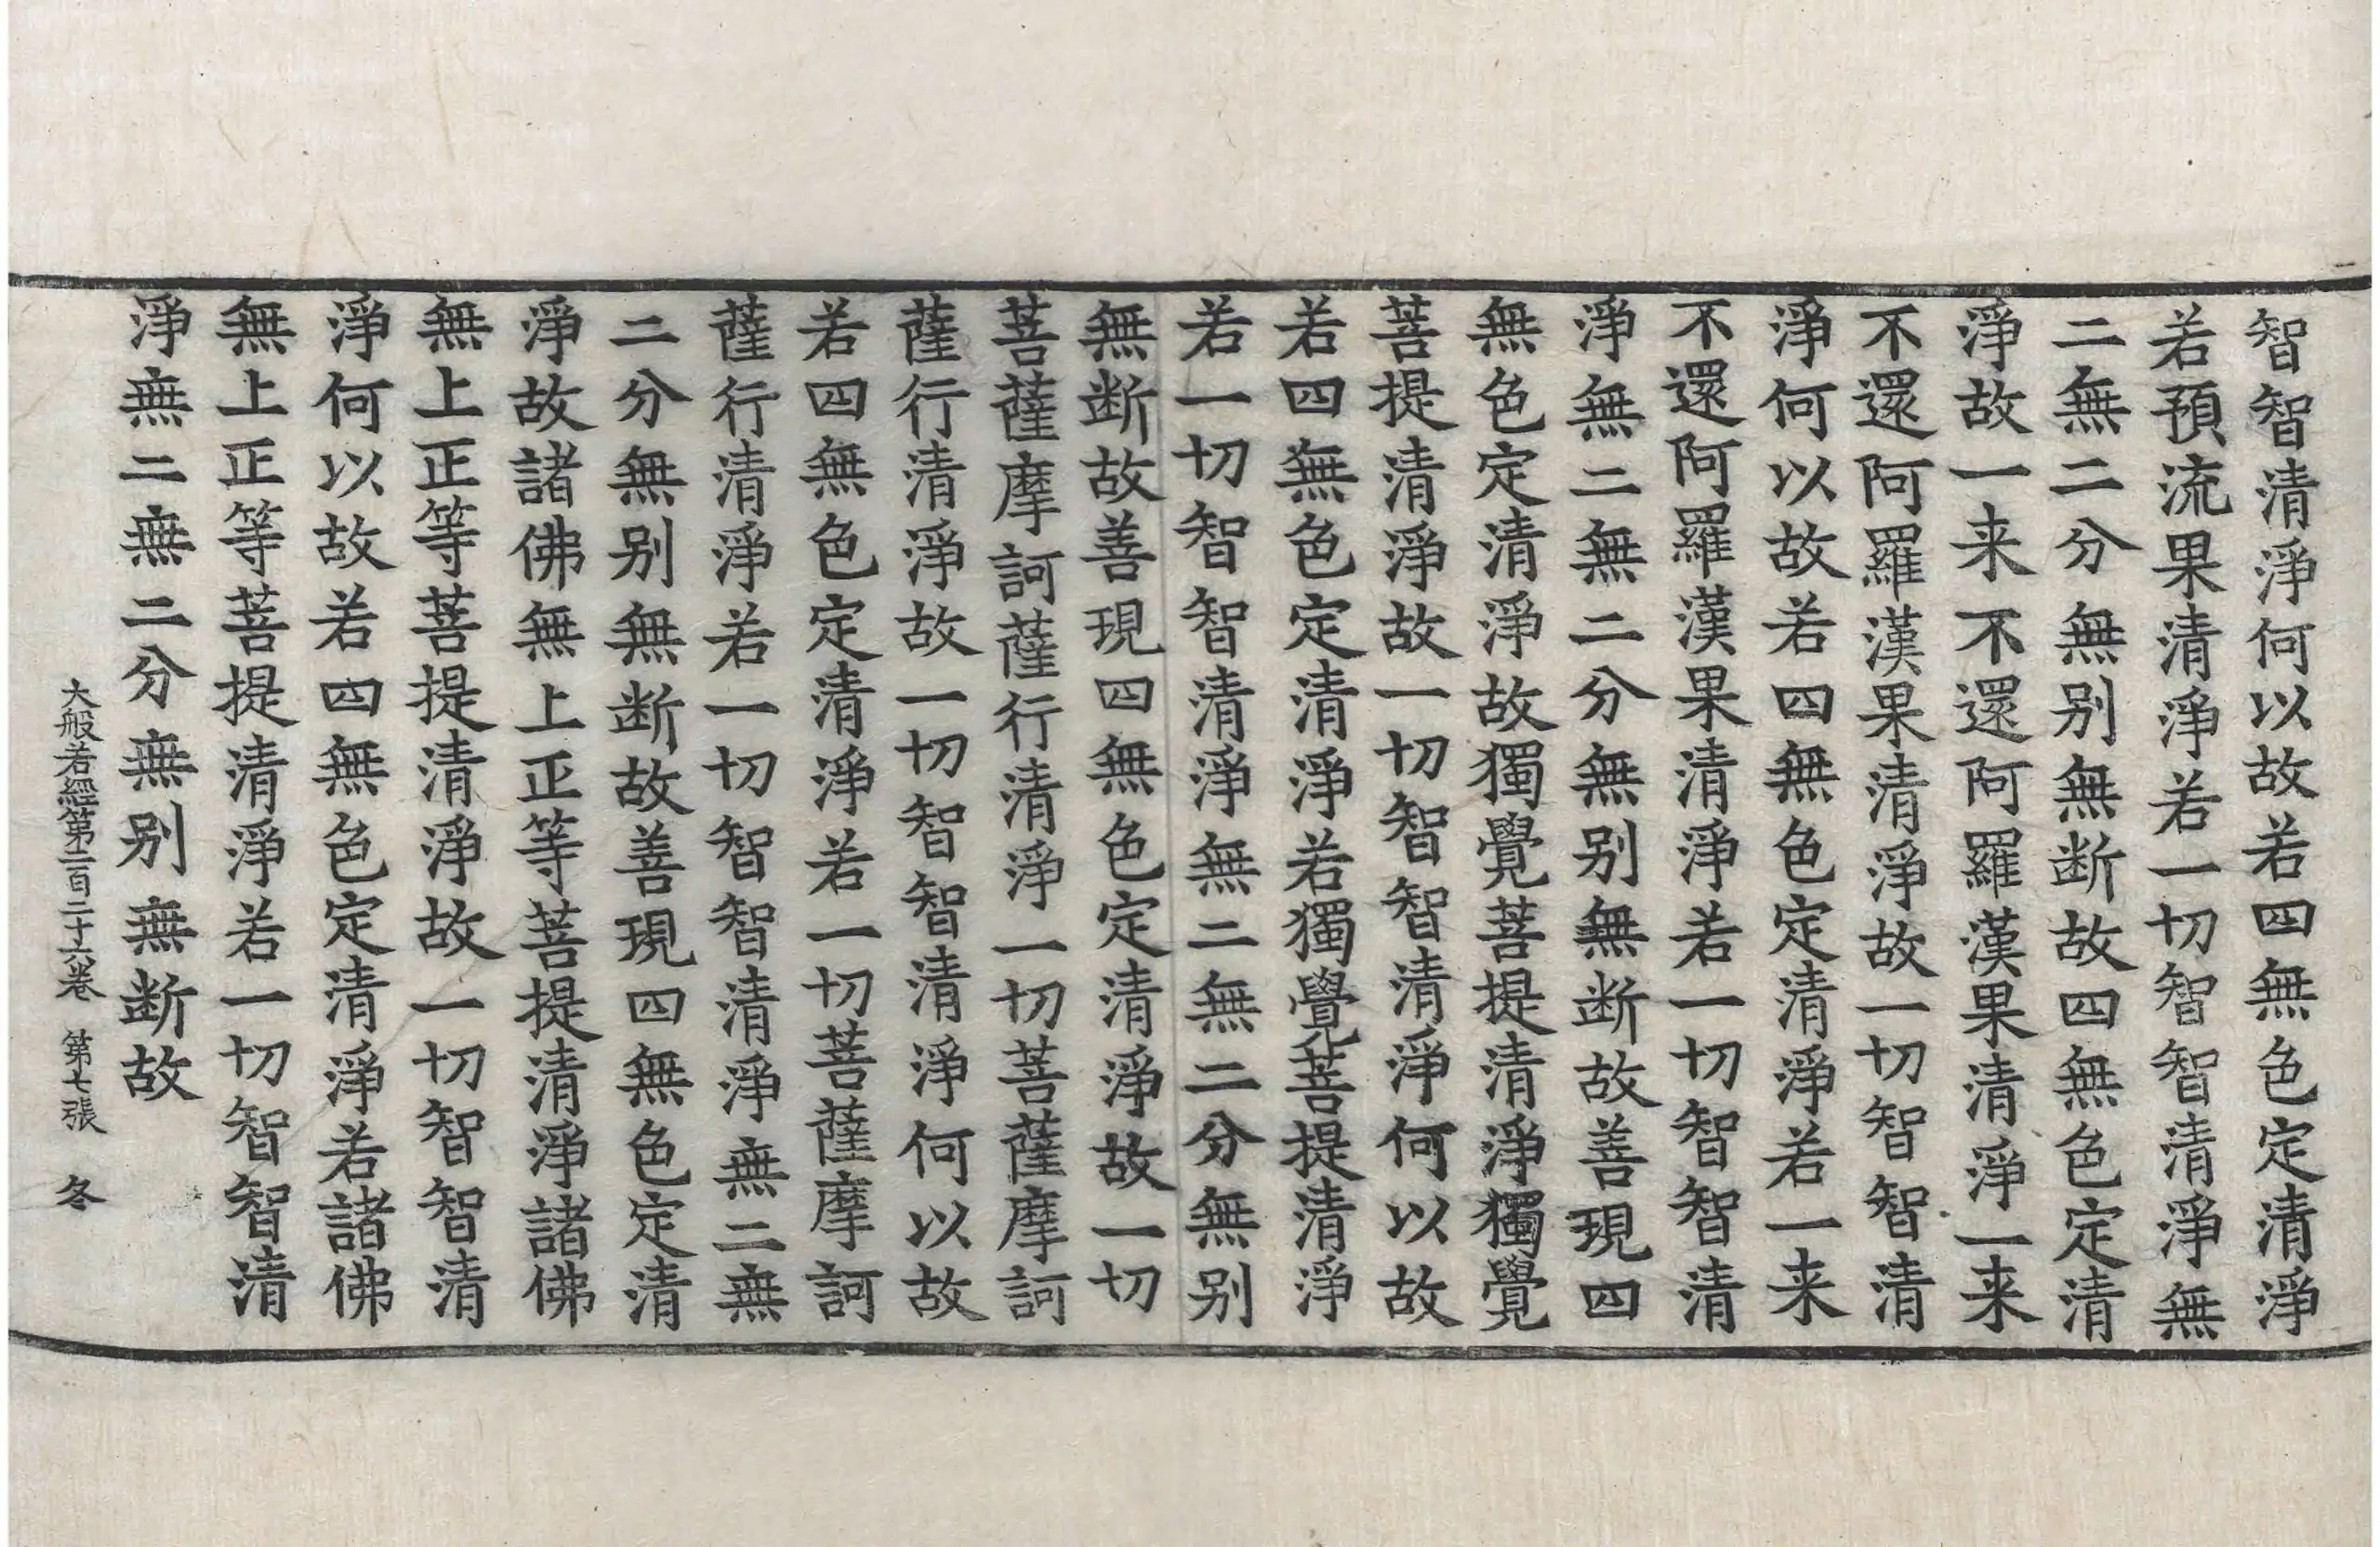 智智清淨何以故若四無色定清淨
若預流果清淨若一切智智清淨無
二無二分無别無断故四無色定清
淨故一来不還阿羅漢果清淨一来
不還阿羅漢果清淨故一切智智清
淨何以故若四無色定清淨若一来
不還阿羅漢果清淨若一切智智清
淨無二無二分無别無断故善現四
無色定清淨故獨覺菩提清淨獨覺
菩提清淨故一切智智清淨何以故
若四無色定清淨若獨覺菩提清淨
若一切智智清淨無二無二分無别
無断故善現四無色定清淨故一切
菩薩摩訶薩行清淨一切菩薩摩訶
薩行清淨故一切智智清淨何以故
若四無色定清淨若一切菩薩摩訶
薩行清淨若一切智智清淨無二無
二分無别無断故善現四無色定清
淨故諸佛無上正等菩提清淨諸佛
無上正等菩提清淨故一切智智清
淨何以故若四無色定清淨若諸佛
無上正等菩提清淨若一切智智清
淨無二無二分無别無断故
大般若經第二百二十六卷 第七張 冬